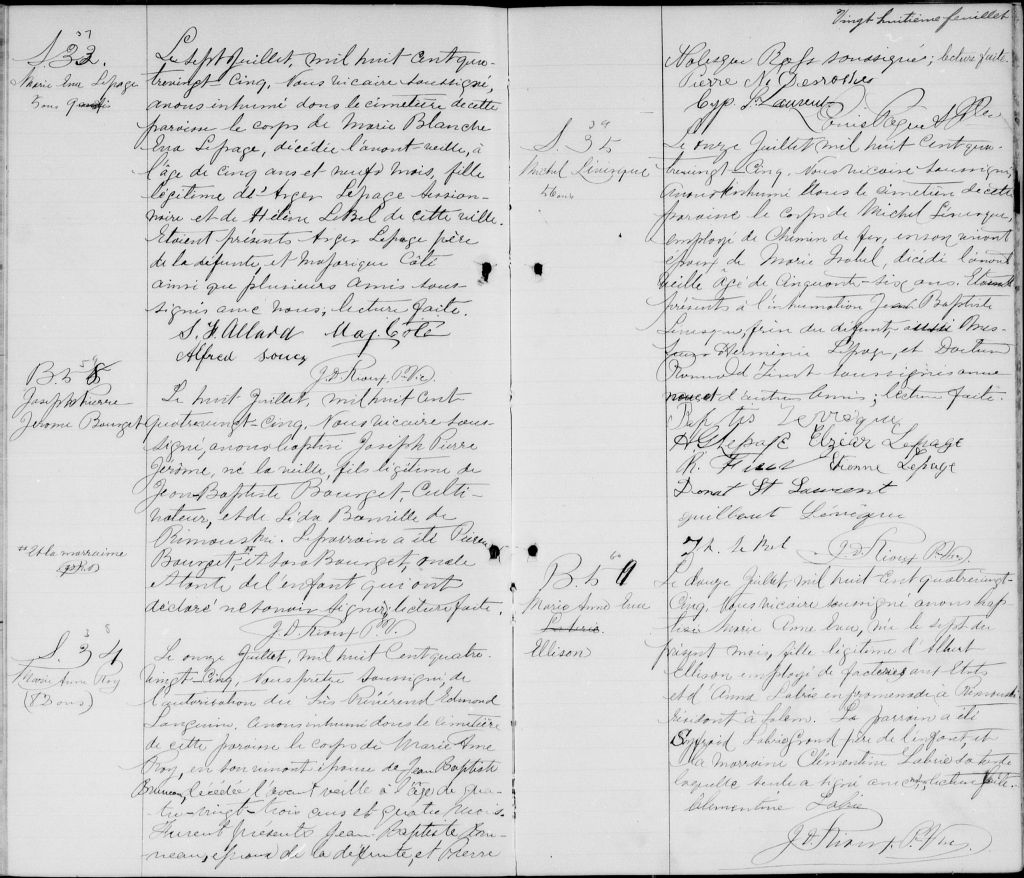 37
S. 33.
Marie Eva Lepage
5 ans 9
Le sept Juillet, mil huit cent qua-
trevingt-Cinq, Nous vicaire soussigné,
avons inhumé dans le cimetière de cette
paroisse le corps de Marie Blanche
Eva Lepage, décédée l'avant-veille, à
l'âge de cinq ans et neuf mois, fille
légitime de Arger Lepage
et de Hélène LeBel de cette ville.
Etaient présents Arger Lepage père
de la défunte, et Majorique Côté
ainsi que plusieurs amis sous-
signés avec nous; lecture faite.
S. F. Allard Maj. Côté
Alfred Soucy
J. D. Rioux P. Vic.
B. 58
Joseph Pierre
Jérome Bourget
Le huit Juillet, mil huit cent
quatrevingt-cinq, Nous vicaire sous-
signé, avons baptisé Joseph Pierre
Jérôme, né la veille, fils légitime de
Jean-Baptiste Bourget, Culti-
vateur, et de Lida Banville de
Rimouski. Le parrain a été Pierre
Bourget, # et Bourget, oncle
et tante de l'enfant qui ont
déclaré ne savoir signer; lecture faite.
J. D. Rioux P. V.
# Et la marraine
38
S. 34
Marie Anne Roy
(83 ans)
Le onze Juillet, mil huit Cent quatre-
vingt-Cinq, Nous prêtre soussigné, de
l'autorisation du Très Révérend Edmond
Langevin, avons inhumé dans le cimetière
de cette paroisse le corps de Marie Anne
Roy, en son vivant épouse de Jean Baptiste
décédée l'avant veille à l'âge de qua-
tre-vingt-trois ans et quatre mois.
Furent présents Jean Baptiste
époux de la défunte, et Pierre
Vingt huitième feuillet
soussignés; lecture faite.
Pierre N. Desroches
Cyp. St Laurent
39
S. 35
Michel Lévesque
56 ans
Le onze Juillet mil huit Cent qua-
trevingt Cinq, Nous vicaire soussigné
avons inhumé dans le cimetière de cette
paroisse le corps de Michel Lévesque,
employé de Chemin de fer, en son vivant
époux de Marie décédé l'avant
veille âgé de Cinquante-six ans. Etaient
présents à l'inhumation Jean Baptiste
Levesque, frère du défunt, aussi
Herménie Lepage, et Docteur
Romuald Fiset soussignés avec
nous et d'autres amis; lecture faite.
Baptis Levesque
H G Lepage Elzéar Lepage
R. Fiset Etienne Lepage
Donat St Laurent
guillaut Lévêque
J. D. Rioux P. Vic.
60
B. 59
Marie Anne Eva
Labrie.
Ellison
Le douze Juillet mil huit Cent quatrevingt-
Cinq, Nous vicaire soussigné avons bap-
tisé Marie Anne Eva, née le sept du
présent mois, fille légitime d'Albert
Ellison employé de factories aux Etats
et d'Anna Labrie en promenade à Rimouski
résidant à Salem. Le parrain a été
Labrie Grand père de l'enfant, et
la Marraine Clémentine Labrie sa tante
laquelle seule a signé avec nous, lecture faite.
Clémentine Labrie
J. D. Rioux P. Vic.